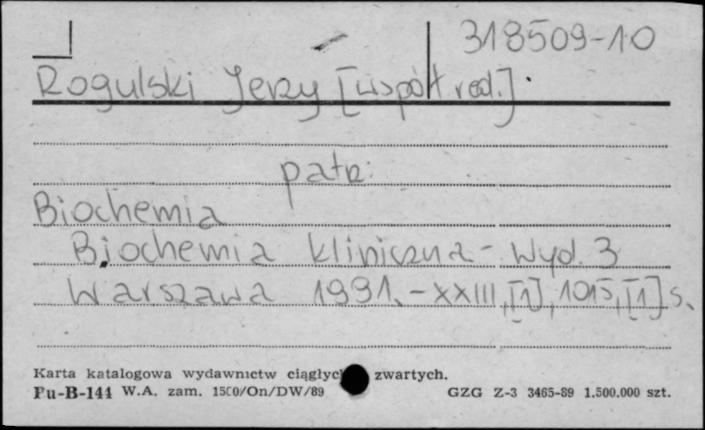 318509-10
Rogulski Jerzy [współ red.].
patrz:
Biochemia
Biochemia kliniczna - Wyd. 3
Warszawa 1991. - XXIII, [1], 1015, [1] s.
Karta katalogowa wydawnictw ciągłyc zwartych.
Pu-B-144 W.A. zam. 1500/On/DW/89 GZG Z-3 3465-89 1.500.000 szt.